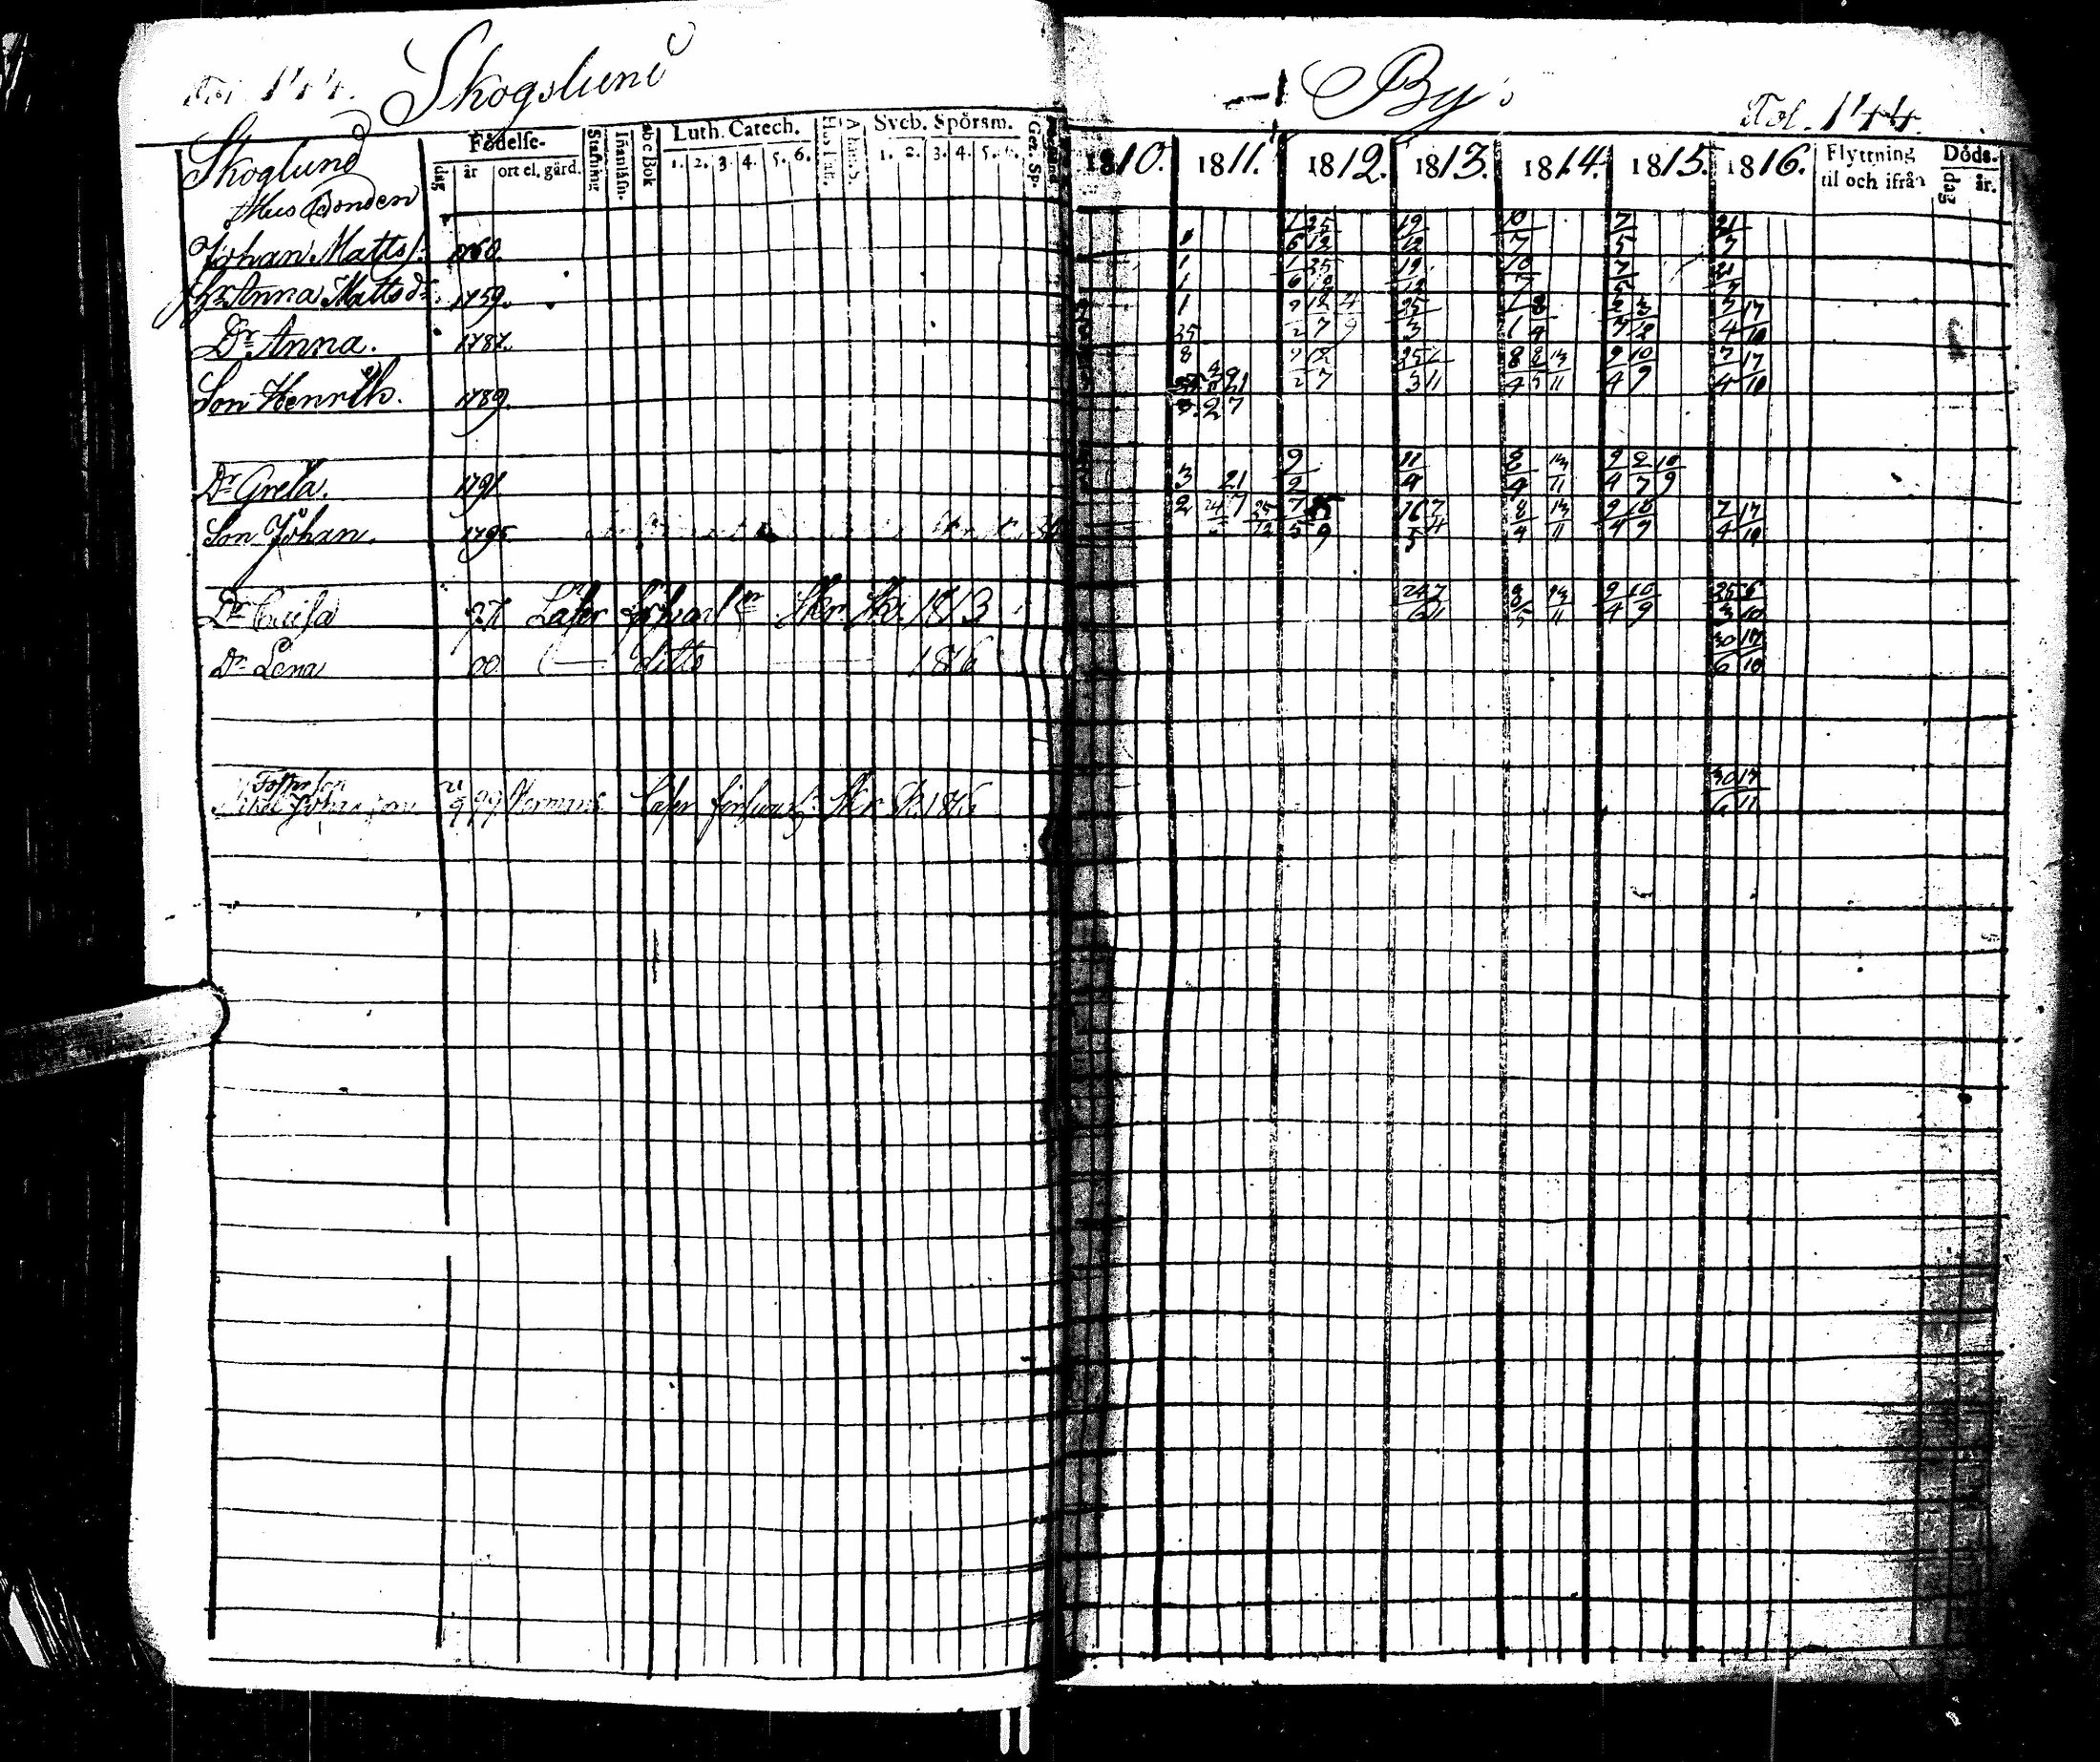 Fol. 144. Skoglund By Fol. 144.
Födelse- Stafning Inanläsn. abc Bok Luth. Catech. Hus Tafl. A. Symb. Sveb. Spörsm. Gez. Sp.
dag år ort el. gård. 1. 2. 3. 4. 5. 6. 1. 2. 3. 4. 5. 6.
1810. 1811. 1812. 1813. 1814. 1815. 1816. Flyttning til och ifrån Döds- dag år.
Skoglund
Hus Bonden
Johan Matts s: 1760. 1 1/6 25/12 19/12 10/7 7/5 21/7
Hr Anna Mattsdr 1759. 1 1 1/6 25/12 19/12 10/7 7/5 21/7
Dr Anna. 1787. 1 25 9/2 18/7 4/9 25/3 1/1 8/4 7/4 17/10
Son Henrik. 1789. 8 9/2 18/7 25/3 8/4 8/5 13/11 9/4 10/9 7/4 17/10
3. 27
Dr Greta. 1791 3/2 21/7 9/2 11/4 8/4 13/11 9/4 2/7 10/9
Son Johan. 1795 24 25/12 7/5 5/9 16/5 7/4 8/4 13/11 9/4 10/9 7/4 17/10
Dr Caisa 97 Läser försvarl. Skr. Sk. 1813 24/6 7/11 8/5 13/11 9/4 10/9 25/3 6/10
Dr Lena 00 ditto 1816 30/6 17/10
Foster son
Johansson 21/9 99 Läser försvarl. Skr. Sk. 1816 30/6 17/11